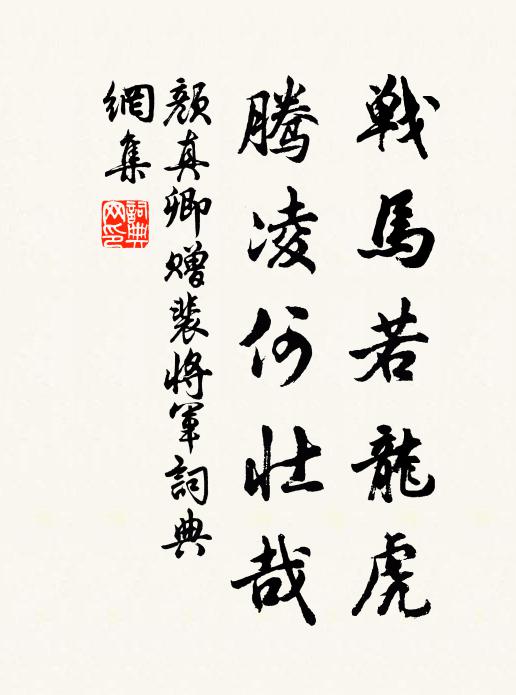 戦馬若龍虎
騰凌何壯哉
顏真卿贈裴將軍詞典
網集
詞典网印